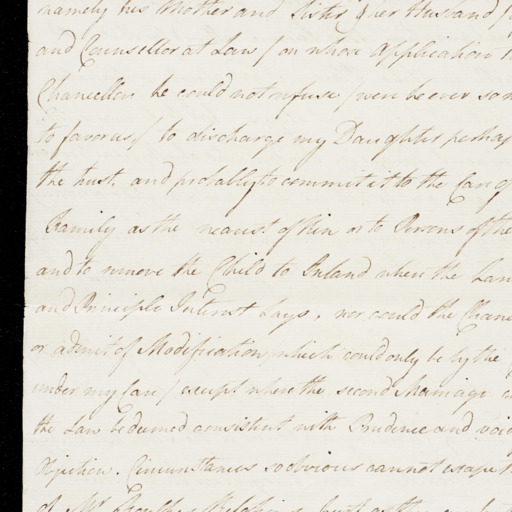 namely his Mother and Sister & her Husband
and Counsellor at Law / on whose Application
Chancellor he could not refuse / were he ever so
to favor us / to discharge my Daughter perhap
the trust. and probably to commit it to the Care of
Family as the nearest of Kin or to Persons of the
and to remove the Child to Ireland when the Lan
and Principle Interest Lays, nor could the Chanc
or admit of Modification, which could only be by the
under my Care / except where the second Marriage
the Law be deemed consistent with Prudence and voi
Objection. Circumstances so obvious cannot escape
of Mr